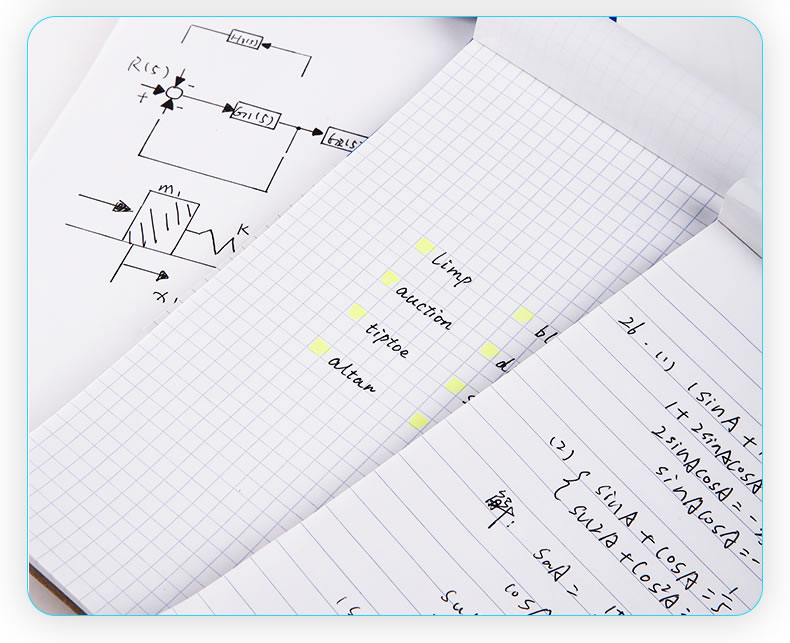 H1(s)
R(s)
-
+
-
G1(s)
G2(s)
m1
K
x1
limp
auction
tiptoe
altar
bl
d
s
26.(1)
(sinA +
1+2sinAcosA
2sinAcosA = -
sinAcosA = -
(2)
{ sinA + cosA = 1/5
sin²A + cos²A =
解:
SinA =
cosA